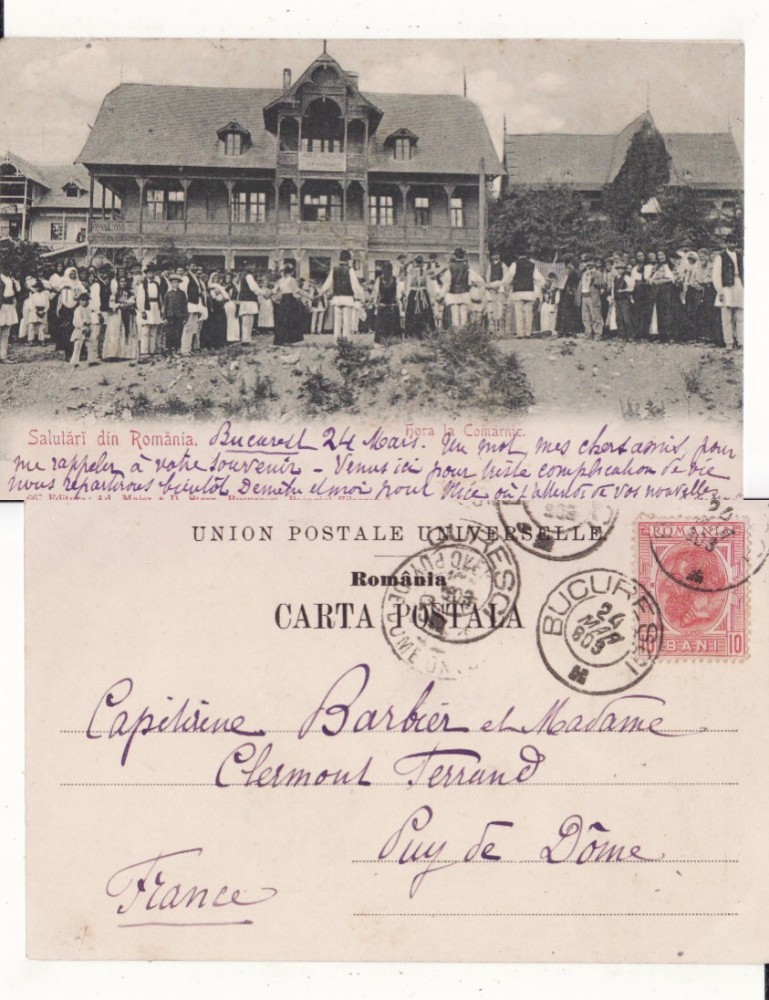 Salutări din România. Hora la Comarnic.
Bucarest 24 Mars. Un mot, mes chers amis, pour
me rappeler à votre souvenir - Venus ici pour triste complication de vie
nous repartirons bientôt Demètre et moi pour Nice où j'attends de vos nouvelles
UNION POSTALE UNIVERSELLE
România
CARTA POSTALA
ROMANIA
10 BANI 10
BUCURESCI
24 MAR 903
PUY-DE-DOME
Capitaine Barbier et Madame
Clermont Ferrand
Puy de Dôme
France